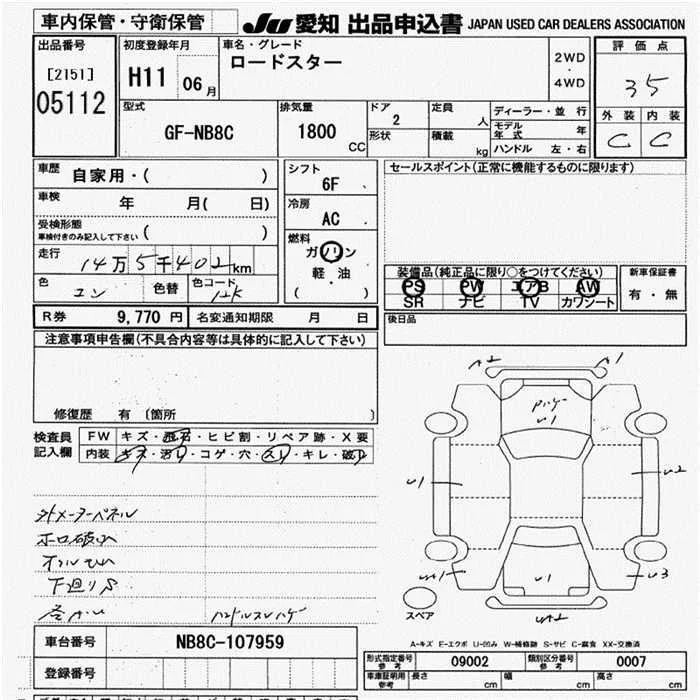 車内保管・守衛保管
JU 愛知 出品申込書 JAPAN USED CAR DEALERS ASSOCIATION
出品番号
[2151]
05112
初度登録年月
H11 06月
車名・グレード
ロードスター
2WD
・
4WD
評価点
3.5
外装 内装
C C
型式
GF-NB8C
排気量
1800
CC
ドア
2
形状
定員
人
積載
kg
ディーラー・並行
モデル年式 年
ハンドル 左・右
車歴 自家用・( )
車検 年 月( 日)
受検形態
車検付きのみ記入して下さい ( )
走行
14万5千402km
色
コン
色替
色コード
12K
シフト
6F
冷房
AC
燃料
ガソリン
軽・油
( )
セールスポイント(正常に機能するものに限ります)
装備品(純正品に限り○をつけてください)
PS PW エアB AW
SR ナビ TV カワシート
新車保証書
有・無
後日品
R券 9,770 円 名変通知期限 月 日
注意事項申告欄(不具合内容等は具体的に記入して下さい)
修復歴 有 〔箇所 〕
検査員
記入欄
FW キズ・飛石・ヒビ割・リペア跡・X要
内装 キズ・汚れ・コゲ・穴・スレ・キレ・破れ
下廻りS
ハンドルスレハゲ
A2 A1
ハゲ
U1
U1
U2
U1
U3
スペア
A-キズ E-エクボ U-凹み W-補修跡 S-サビ C-腐食 XX-交換済
車台番号 NB8C-107959
登録番号
形式指定番号
参考
09002
類別区分番号
参考
0007
車庫証明用
参考
長さ cm 幅 cm 高さ cm